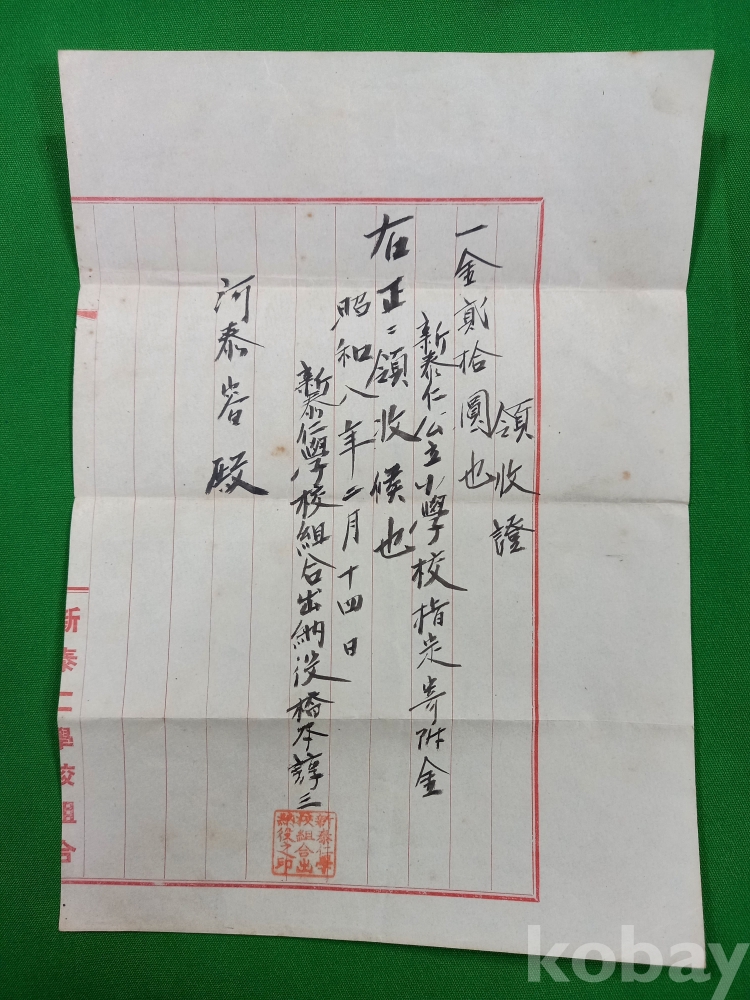 領收證
一金貳拾圓也
新泰仁公立小學校指定寄附金
右正ニ領收候也
昭和八年二月十四日
新泰仁學校組合出納役橋本諄三
新泰仁學
校組合出
納役之印
河泰岩殿
新泰仁學校組合
kobay